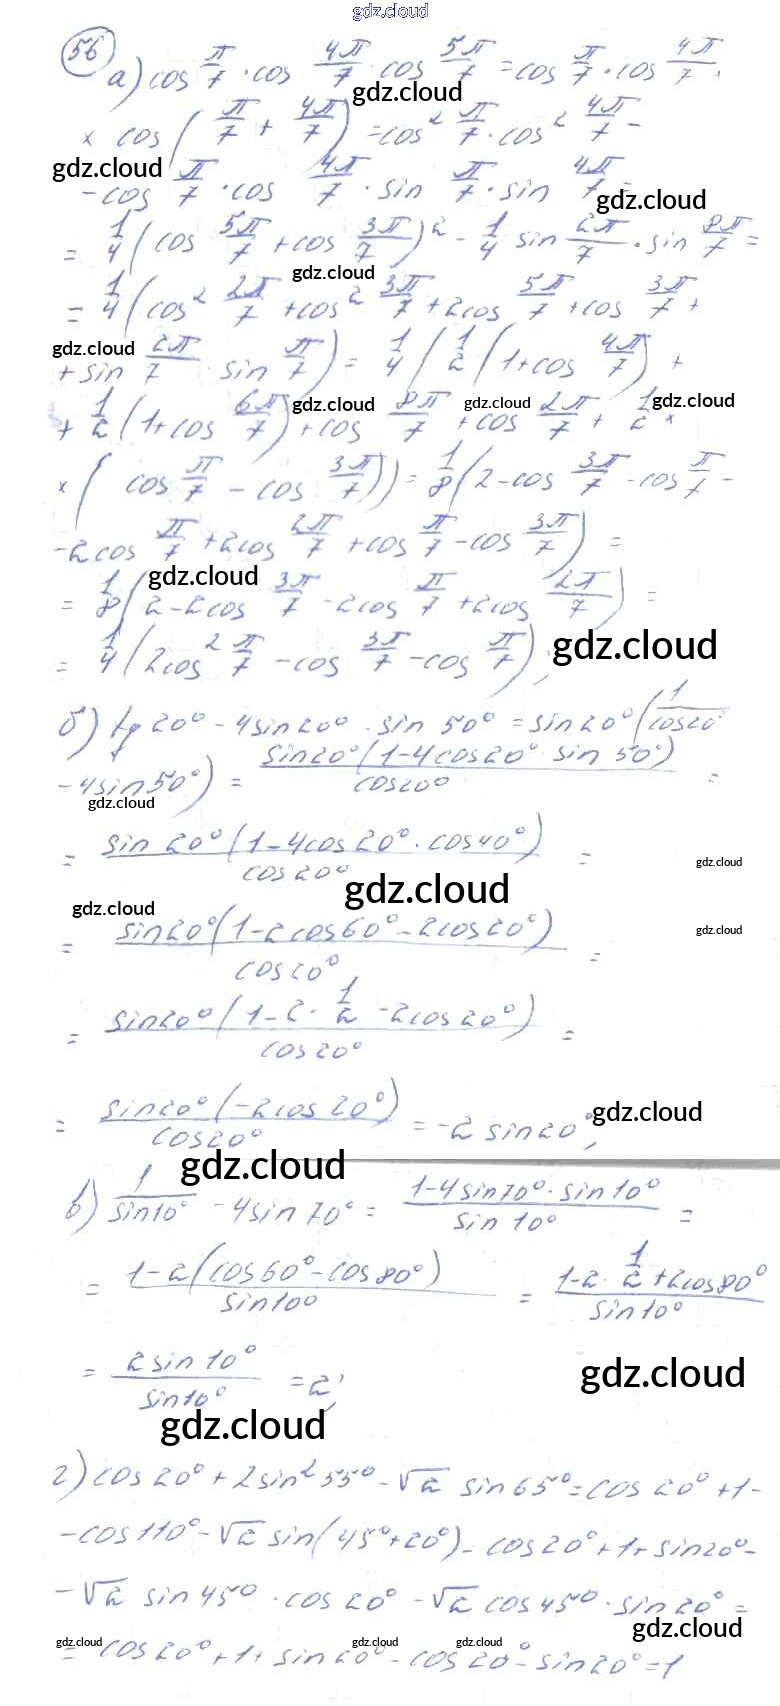 gdz.cloud
56
а) cos π/7 · cos 4π/7 · cos 5π/7 = cos π/7 · cos 4π/7 ·
× cos (π/7 + 4π/7) = cos² π/7 · cos² 4π/7 −
gdz.cloud
gdz.cloud
− cos π/7 · cos 4π/7 · sin π/7 · sin 4π/7 =
gdz.cloud
= 1/4 (cos 5π/7 + cos 3π/7)² − 1/4 sin 2π/7 · sin 8π/7 =
gdz.cloud
= 1/4 (cos² 2π/7 + cos² 3π/7 + 2cos 5π/7 + cos 3π/7 +
gdz.cloud
+ sin 2π/7 · sin π/7) = 1/4 (1/2 (1 + cos 4π/7) +
gdz.cloud gdz.cloud gdz.cloud
+ 1/2 (1 + cos 6π/7) + cos 8π/7 + cos 2π/7 + 1/2 ×
× (cos π/7 − cos 3π/7)) = 1/8 (2 − cos 3π/7 − cos π/7 −
− 2cos π/7 + 2cos 2π/7 + cos π/7 − cos 3π/7) =
gdz.cloud
= 1/8 (2 − 2cos 3π/7 − 2cos π/7 + 2cos 2π/7) =
= 1/4 (2cos² π/7 − cos 3π/7 − cos π/7);
gdz.cloud
б) tg 20° − 4sin 20° · sin 50° = sin 20° (1/cos 20°
− 4sin 50°) = sin 20° (1 − 4cos 20° · sin 50°)/cos 20° =
gdz.cloud
= sin 20° (1 − 4cos 20° · cos 40°)/cos 20° =
gdz.cloud
gdz.cloud
gdz.cloud
= sin 20° (1 − 2cos 60° − 2cos 20°)/cos 20° =
gdz.cloud
= sin 20° (1 − 2 · 1/2 − 2cos 20°)/cos 20° =
= sin 20° (−2cos 20°)/cos 20° = −2 sin 20°;
gdz.cloud
gdz.cloud
в) 1/sin 10° − 4sin 70° = 1 − 4sin 70° · sin 10°/sin 10° =
= 1 − 2(cos 60° − cos 80°)/sin 10° = 1 − 2 · 1/2 + 2cos 80°/sin 10°
= 2 sin 10°/sin 10° = 2;
gdz.cloud
gdz.cloud
г) cos 20° + 2sin² 55° − √2 sin 65° = cos 20° + 1 −
− cos 110° − √2 sin (45° + 20°) = cos 20° + 1 + sin 20° −
− √2 sin 45° · cos 20° − √2 cos 45° · sin 20° =
gdz.cloud
gdz.cloud gdz.cloud gdz.cloud
= cos 20° + 1 + sin 20° − cos 20° − sin 20° = 1